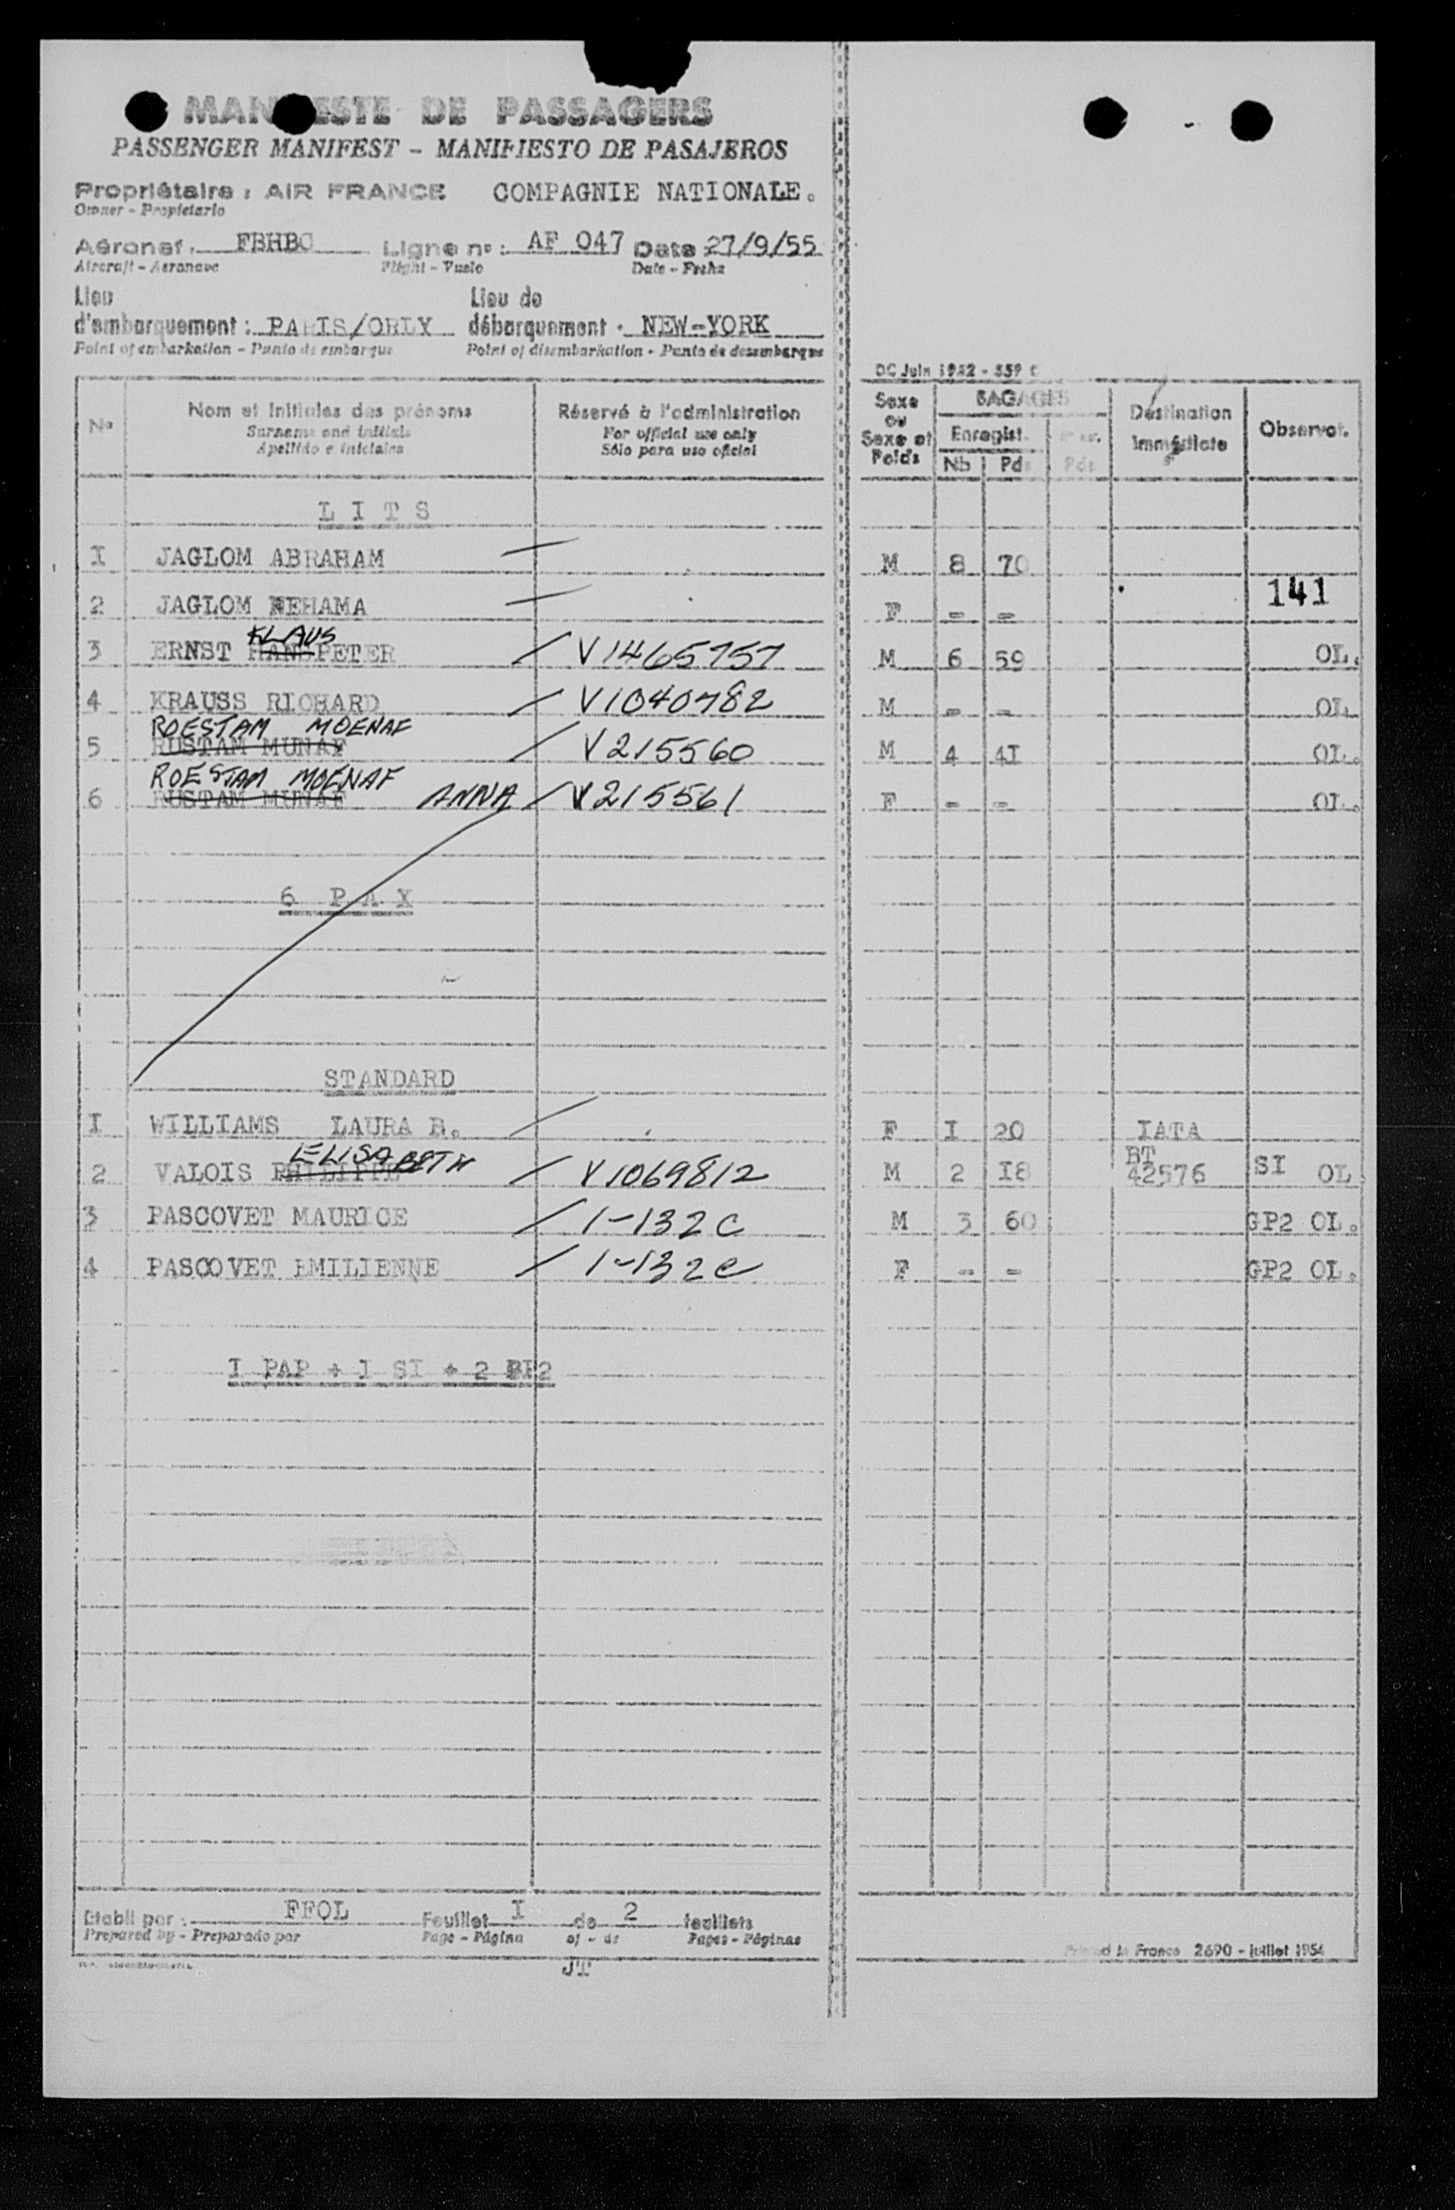 MANIFESTE DE PASSAGERS
PASSENGER MANIFEST - MANIFIESTO DE PASAJEROS
Propriétaire : AIR FRANCE COMPAGNIE NATIONALE.
Owner - Propietario
Aéronef. FBHBC Ligne nº : AF 047 Date 27/9/55
Aircraft - Aeronave Flight - Vuelo Date - Fecha
Lieu Lieu de
d'embarquement : PARIS/ORLY débarquement . NEW-YORK
Point of embarkation - Punto de embarque Point of disembarkation - Punto de desembarque
DC Juin 1952 - 559
Nº Nom et initiales des prénoms Réservé à l'administration Sexe ou Sexe et Poids BAGAGES Destination immédiate Observat.
Surname and initials For official use only Enregist.
Apellido e iniciales Sólo para uso oficial Nb Pds Pds
L I T S
I JAGLOM ABRAHAM — M 8 70
2 JAGLOM NEHAMA — F - - 141
KLAUS
3 ERNST HANSPETER / V1465757 M 6 59 OL.
4 KRAUSS RICHARD / V1040782 M - - OL
ROESTAM MOENAF
5 RUSTAM MUNAF / V215560 M 4 4I OL.
ROESTAM MOENAF
6 RUSTAM MUNAF ANNA / V215561 F - - OL.
6 P A X
STANDARD
I WILLIAMS LAURA B. / F I 20 IATA
ELISABETH BT
2 VALOIS PHILIPPE / V1069812 M 2 I8 42576 SI OL.
3 PASCOVET MAURICE / 1-132C M 3 60 GP2 OL.
4 PASCOVET EMILIENNE / 1-132C F - - GP2 OL.
I PAP + I SI + 2 BP2
Etabli par : FFOL Feuillet I de 2 feuillets
Prepared by - Preparado por Page - Página of - de Pages - Páginas
Printed in France 2690 - juillet 1954
JT